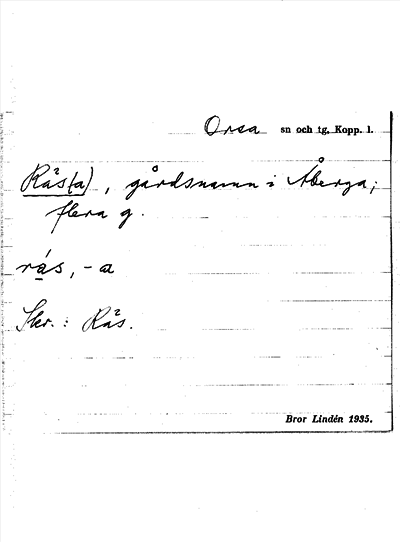 Orsa sn och tg. Kopp. l.
Rås(a), gårdsnamn i Åberga;
flera g.
rås, -a
Skr.: Rås.
Bror Lindén 1935.